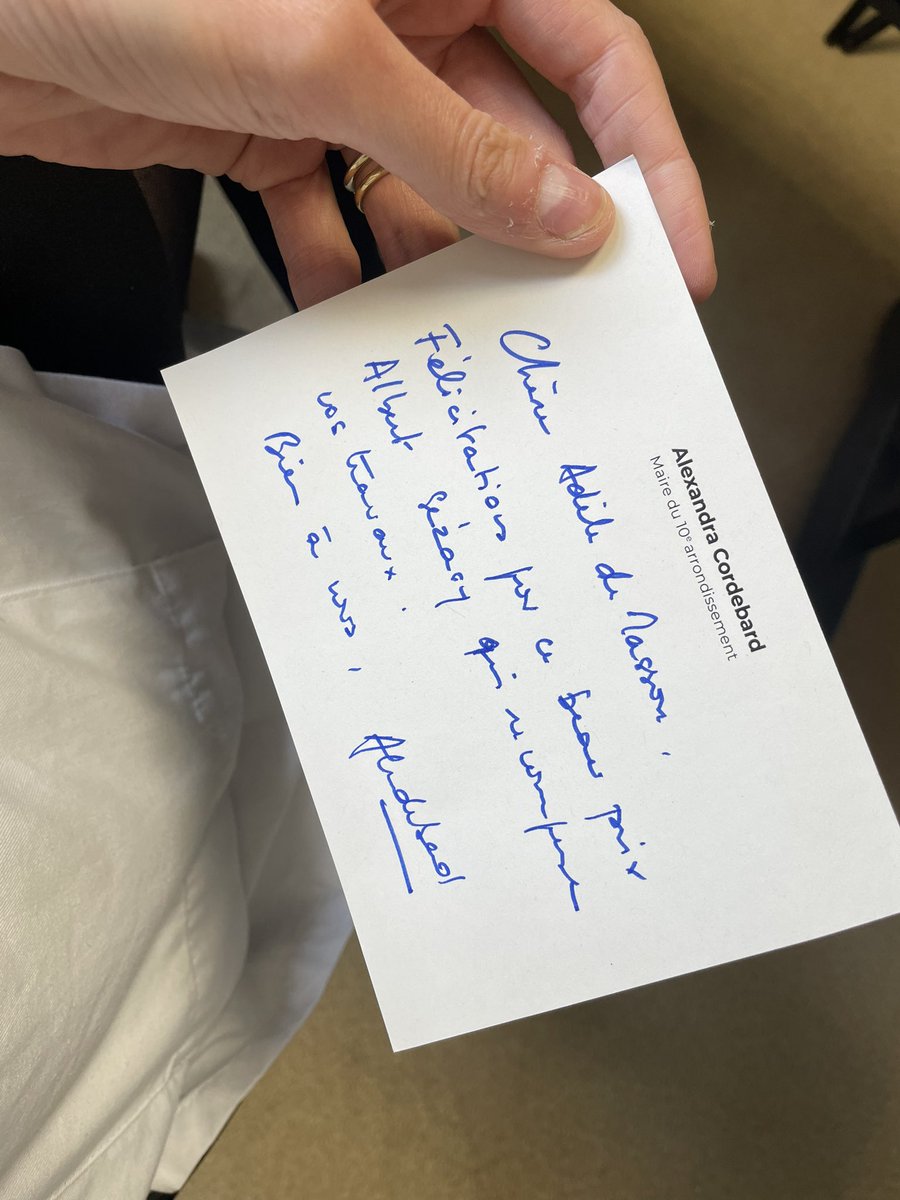 Alexandra Cordebard
Maire du 10e arrondissement
Chère Adèle de Masson,
Félicitations pour ce beau prix
Albert Sézary qui récompense
vos travaux.
Bien à vous,
ACordebard